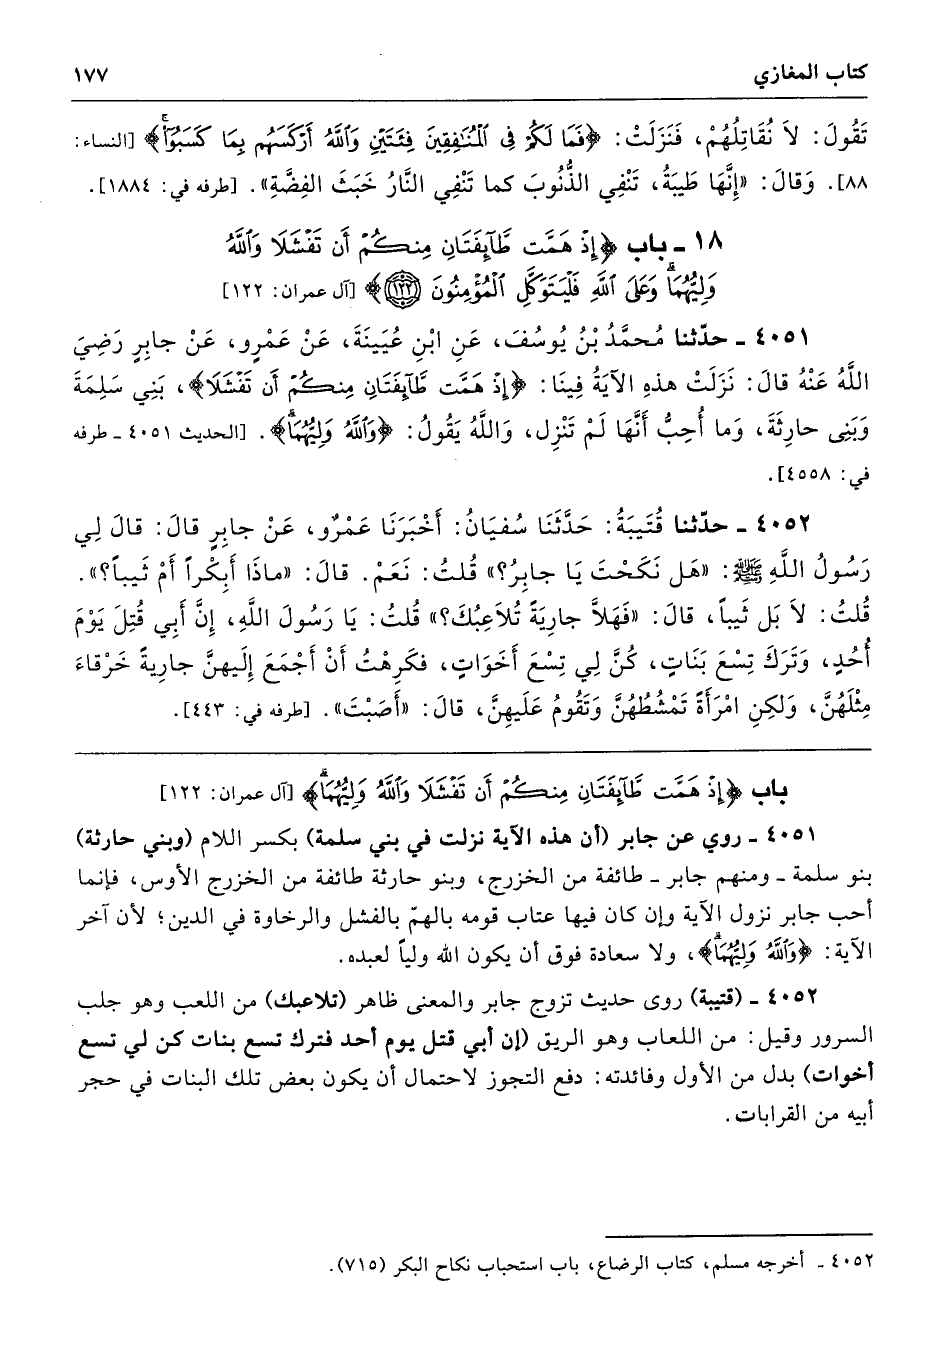 كتاب المغازي ١٧٧
تَقُولَ: لاَ نُقَاتِلُهُمْ، فَنَزَلَتْ: ﴿فَمَا لَكُمْ فِي الْمُنَافِقِينَ فِئَتَيْنِ وَاللَّهُ أَرْكَسَهُم بِمَا كَسَبُوا﴾ [النساء:
٨٨]. وَقَالَ: «إِنَّهَا طَيبَةُ، تَنْفِي الذُّنُوبَ كما تَنْفِي النَّارُ خَبَثَ الفِضَّةِ». [طرفه في: ١٨٨٤].
١٨ ـ باب ﴿إِذْ هَمَّت طَّائِفَتَانِ مِنكُمْ أَن تَفْشَلَا وَاللَّهُ
وَلِيُّهُمَا وَعَلَى اللَّهِ فَلْيَتَوَكَّلِ الْمُؤْمِنُونَ ١٢٢﴾ [آل عمران: ١٢٢]
٤٠٥١ ـ حدّثنا مُحمَّدُ بْنُ يُوسُفَ، عَنِ ابْنِ عُيَينَةَ، عَنْ عَمْرٍو، عَنْ جابِرٍ رَضِيَ
اللَّهُ عَنْهُ قالَ: نَزَلَتْ هذهِ الآيَةُ فِينَا: ﴿إِذْ هَمَّت طَّائِفَتَانِ مِنكُمْ أَن تَفْشَلَا﴾، بَنِي سَلِمَةَ
وَبَنِي حارِثَةَ، وَما أُحِبُّ أَنَّهَا لَمْ تَنْزِل، وَاللَّهُ يَقُولُ: ﴿وَاللَّهُ وَلِيُّهُمَا﴾. [الحديث ٤٠٥١ ـ طرفه
في: ٤٥٥٨].
٤٠٥٢ ـ حدّثنا قُتَيبَةُ: حَدَّثَنَا سُفيَانُ: أَخْبَرَنَا عَمْرٌو، عَنْ جابِرٍ قالَ: قالَ لِي
رَسُولُ اللَّهِ ﷺ: «هَل نَكَحْتَ يَا جابِرُ؟» قُلتُ: نَعَمْ. قالَ: «ماذَا أَبِكْراً أَمْ ثَيباً؟».
قُلتُ: لاَ بَل ثَيباً، قالَ: «فَهَلاَّ جارِيَةً تُلاَعِبُكَ؟» قُلتُ: يَا رَسُولَ اللَّهِ، إِنَّ أَبِي قُتِلَ يَوْمَ
أُحُدٍ، وَتَرَكَ تِسْعَ بَنَاتٍ، كُنَّ لِي تِسْعَ أَخَوَاتٍ، فكَرِهْتُ أَنْ أَجْمَعَ إِلَيهنَّ جارِيةً خَرْقاءَ
مِثْلَهُنَّ، وَلكِنِ امْرَأَةً تَمْشُطُهُنَّ وَتَقُومُ عَلَيهِنَّ، قالَ: «أَصَبْتَ». [طرفه في: ٤٤٣].
باب ﴿إِذْ هَمَّت طَّائِفَتَانِ مِنكُمْ أَن تَفْشَلَا وَاللَّهُ وَلِيُّهُمَا﴾ [آل عمران: ١٢٢]
٤٠٥١ ـ روي عن جابر (أن هذه الآية نزلت في بني سلمة) بكسر اللام (وبني حارثة)
بنو سلمة ـ ومنهم جابر ـ طائفة من الخزرج، وبنو حارثة طائفة من الخزرج الأوس، فإنما
أحب جابر نزول الآية وإن كان فيها عتاب قومه بالهمّ بالفشل والرخاوة في الدين؛ لأن آخر
الآية: ﴿وَاللَّهُ وَلِيُّهُمَا﴾، ولا سعادة فوق أن يكون الله ولياً لعبده.
٤٠٥٢ ـ (قتيبة) روى حديث تزوج جابر والمعنى ظاهر (تلاعبك) من اللعب وهو جلب
السرور وقيل: من اللعاب وهو الريق (إن أبي قتل يوم أحد فترك تسع بنات كن لي تسع
أخوات) بدل من الأول وفائدته: دفع التجوز لاحتمال أن يكون بعض تلك البنات في حجر
أبيه من القرابات.
٤٠٥٢ ـ أخرجه مسلم، كتاب الرضاع، باب استحباب نكاح البكر (٧١٥).